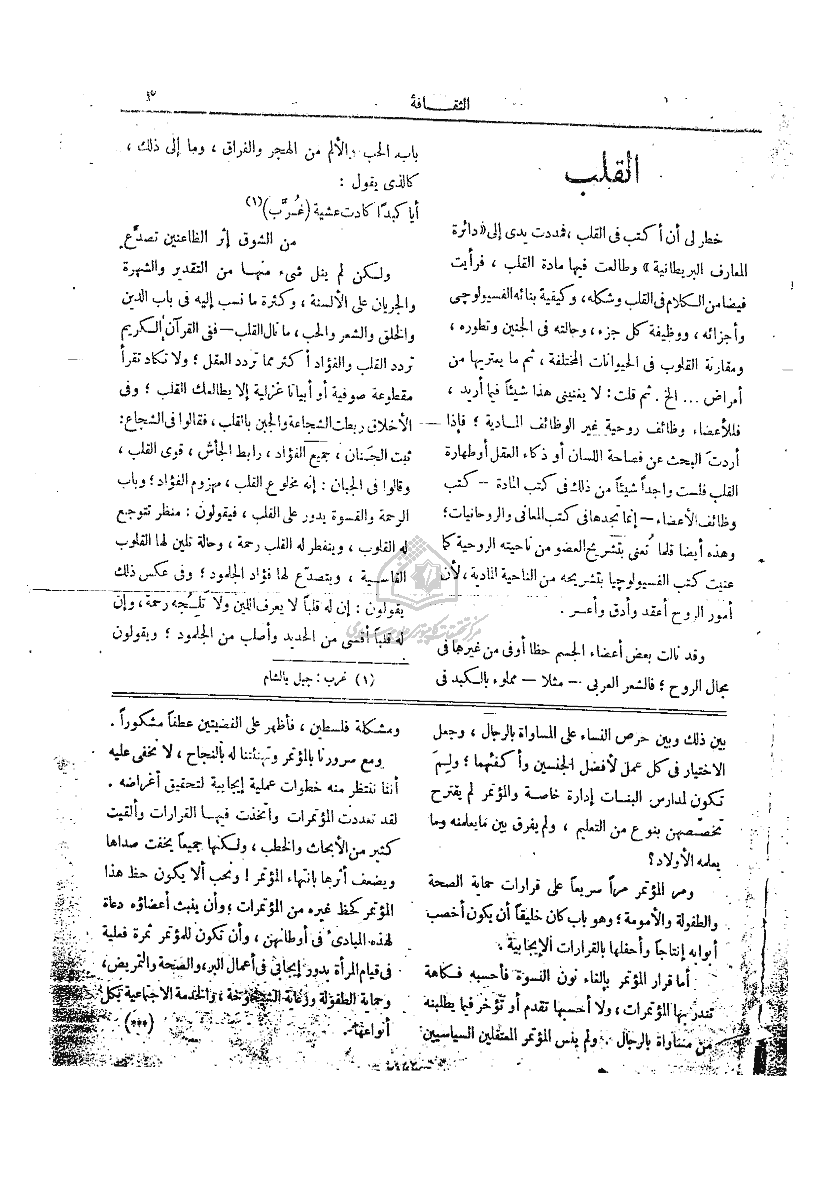 الثقافة
القلب
خطر لى أن أكتب فى القلب ، فمددت يدى إلى « دائرة
المعارف البريطانية » وطالعت فيها مادة القلب ، فرأيت
فيضا من الكلام فى القلب وشكله ، وكيفية بنائه الفسيولوچى
وأجزائه ، ووظيفة كل جزء ، وحالته فى الجنين وتطوره ،
ومقارنة القلوب فى الحيوانات المختلفة ، ثم ما يعتريها من
أمراض ... الخ . ثم قلت : لا يغنينى هذا شيئاً فيما أريد ،
فللأعضاء وظائف روحية غير الوظائف المادية ؛ فإذا
أردتَ البحث عن فصاحة اللسان أو ذكاء العقل أو طهارة
القلب فلست واجداً شيئاً من ذلك فى كتب المادة — كتب
وظائف الأعضاء — إنما تجدها فى كتب المعانى والروحانيات ؛
وهذه أيضا قلما تُعنى بتشريح العضو من ناحيته الروحية كما
عنيت كتب الفسيولوچيا بتشريحه من الناحية المادية ، لأن
أمور الروح أعقد وأدق وأعسر .
وقد نالت بعض أعضاء الجسم حظا أوفى من غيرها فى
مجال الروح ؛ فالشعر العربى — مثلا — مملوء بالكبد فى
باب الحب والألم من الهجر والفراق ، وما إلى ذلك ،
كالذى يقول :
أيا كبدًا كادت عشية (غُرَّب)(١)
من الشوق إثر الظاعنين تصدَّع
ولكن لم ينل شىء منها من التقدير والشهرة
والجريان على الألسنة ، وكثرة ما نسب إليه فى باب الدين
والخلق والشعر والحب ، ما نال القلب — ففى القرآن الكريم
تردد القلب والفؤاد أكثر مما تردد العقل ؛ ولا تكاد تقرأ
مقطوعة صوفية أو أبياتا غزلية إلا يطالعك القلب ؛ وفى
الأخلاق ربطت الشجاعة والجبن بالقلب ، فقالوا فى الشجاع :
ثبت الجَنان ، جميع الفؤاد ، رابط الجأش ، قوى القلب ،
وقالوا فى الجبان : إنه مخلوع القلب ، مهزوم الفؤاد ؛ وباب
الرحمة والقسوة يدور على القلب ، فيقولون : منظر تتوجع
له القلوب ، وينفطر له القلب رحمة ، وحالة تلين لها القلوب
القاسية ، ويتصدّع لها فؤاد الجلمود ؛ وفى عكس ذلك
يقولون : إن له قلباً لا يعرف اللين ولا تَلِجُه رحمة ، وإن
له قلباً أقسى من الحديد وأصلب من الجلمود ؛ ويقولون
(١) غرب : جبل بالشام
بين ذلك وبين حرص النساء على المساواة بالرجال ، وجعل
الاختيار فى كل عمل لأفضل الجنسين وأكفئهما ؛ ولِمَ
تكون لمدارس البنات إدارة خاصة والمؤتمر لم يقترح
تخصّصهن بنوع من التعليم ، ولم يفرق بين ما يعلمنه وما
يعلمه الأولاد ؟
ومر المؤتمر مراً سريعاً على قرارات حماية الصحة
والطفولة والأمومة ؛ وهو باب كان خليقاً أن يكون أخصب
أبوابه إنتاجاً وأحفلها بالقرارات الإيجابية .
أما قرار المؤتمر بإلغاء نون النسوة فأحسبه فكاهة
تتندر بها المؤتمرات ، ولا أحسبها تقدم أو تؤخر فيما يطلبنه
من مساواة بالرجال . ولم ينس المؤتمر المعتقلين السياسيين
ومشكلة فلسطين ، فأظهر على القضيتين عطفاً مشكوراً .
ومع سرورنا بالمؤتمر وتهنئتنا له بالنجاح ، لا نخفى عليه
أننا ننتظر منه خطوات عملية إيجابية لتحقيق أغراضه .
لقد تعددت المؤتمرات واتخذت فيها القرارات وألقيت
كثير من الأبحاث والخطب ، ولكنها جميعاً يخفت صداها
ويضعف أثرها بانتهاء المؤتمر ! ونحب ألا يكون حظ هذا
المؤتمر كحظ غيره من المؤتمرات ؛ وأن ينبث أعضاؤه دعاة
لهذه المبادئ فى أوطانهن ، وأن تكون للمؤتمر ثمرة فعلية
فى قيام المرأة بدور إيجابى فى أعمال البر ، والصحة والتمريض ،
وحماية الطفولة ورعاية الشيخوخة ، والخدمة الاجتماعية بكل
أنواعها . (***)